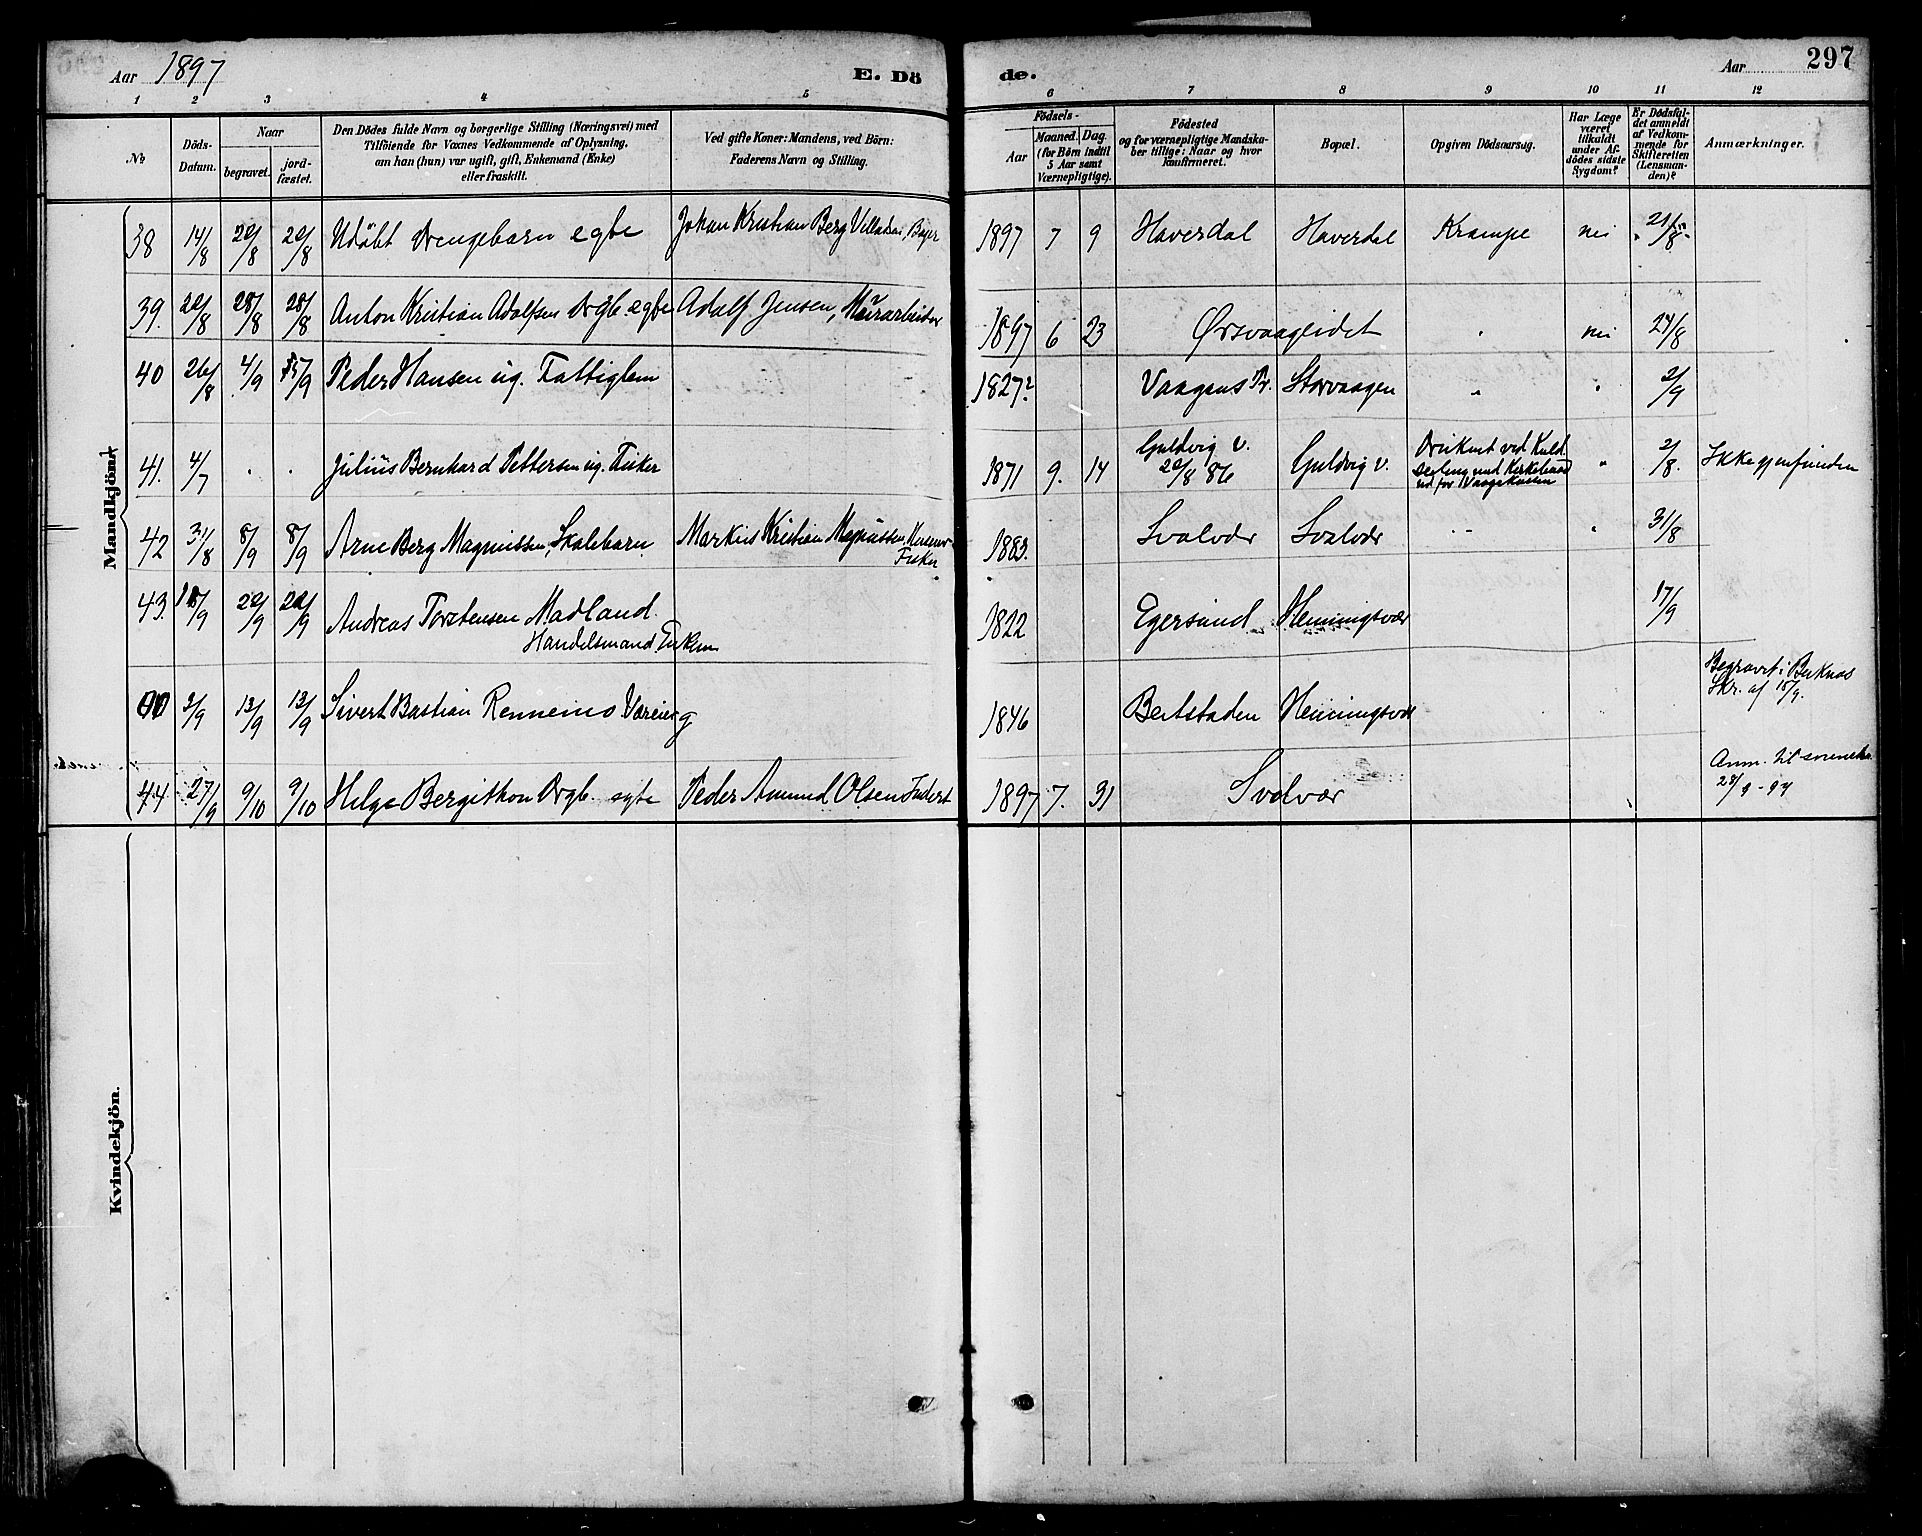 Aar 1897
E. Dö
de.
Aar
297
1 2 3 4 5 6 7 8 9 10 11 12
No
Döds-Datum.
Naar
begravet.
jord-fæstet.
Den Dödes fulde Navn og borgerlige Stilling (Næringsvei) med
Tilföiende for Voxnes Vedkommende af Oplysning,
om han (hun) var ugift, gift, Enkemand (Enke)
eller fraskilt.
Ved gifte Koner: Mandens, ved Börn:
Faderens Navn og Stilling.
Födsels-
Aar
Maaned. Dag.
(for Börn indtil
5 Aar samt
Værnepligtige).
Födested
og for værnepligtige Mandska-
ber tillige: Naar og hvor
konfirmeret.
Bopæl.
Opgiven Dödsaarsag.
Har Læge
været
tilkaldt
under Af-
dödes sidste
Sygdom?
Er Dödsfal-
det anmeldt
af Vedkom-
mende for
Skifteretten
(Lensman-
den)?
Anmærkninger.
Mandkjön.
38 14/8 20/8 20/8 Udöbt Drengebarn egte Johan Kristian Berg 1897 7 9 Haverdal Haverdal Krampe nei 21/8
39. 20/8 28/8 28/8 Anton Kristian Adolfsen Drgb. egte Adolf Jensen, Murarbeider 1897 6 23 Örsvaageidet nei 24/8
40 26/8 4/9 /9 Peder Hansen ug. Fattiglem 1827? Vaagens Pr. Storvaagen " 2/9
41. 4/7 . . Julius Bernhard Pettersen ug. Fisker 1871 9. 14 Guldvig v. 20/8 86 Guldvig v. Druknet ved Kuld-
seiling " 2/8. Ikke gjenfunden
42 31/8 8/9 8/9 Arne Berg Magnussen, Skolebarn Markus Kristian Magnussen,
Fisker 1883. Svolvær Svolvær " 31/8
43. /9 20/9 20/9 Andreas Torstensen Madland.
Handelsmand Enkem 1822 Egersund Henningsvær 17/9
2/9 13/9 13/9 Sivert Bastian Værei 1846 Henningsvær Begravet i
Skr. af 15/9.
44 27/9 9/10 9/10 Helge Bergithon Drgb. egte Peder Amund Olsen 1897 7. 31 Svolvær Anm. til
28/9 - 97
Kvindekjön.